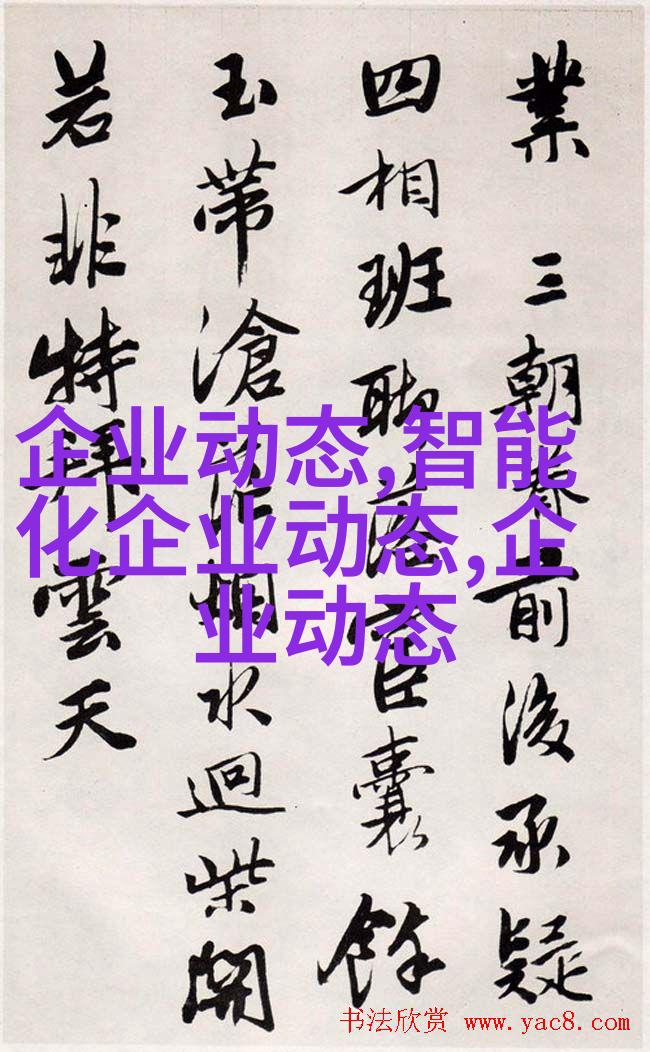 業 三朝前後承疑
四相班聯囊餘
玉帶滄水迴柴關
若非特拜雲天
企业动态,智能
化企业动态,企
业动态
书法欣赏 www.yac8.com